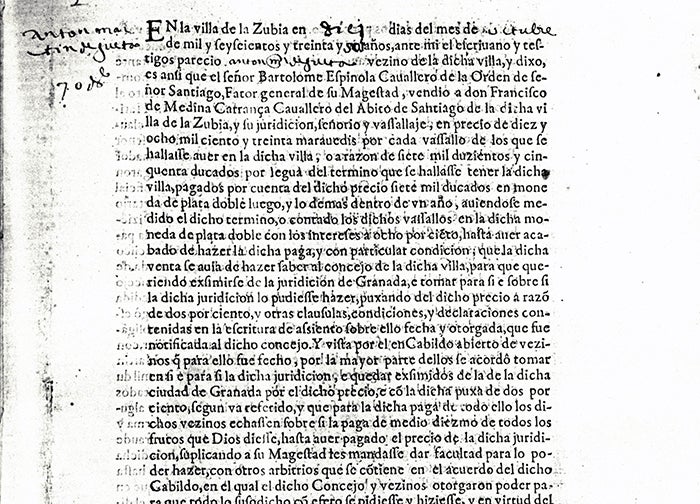 anton mar
tin de gueta
70 ds
EN la villa de la Zubia en diez dias del mes de octubre
de mil y seyscientos y treinta y años, ante mi el escriuano y tes-
tigos parecio anton m de gueta vezino de la dicha villa, y dixo,
es ansi que el señor Bartolome Espinola Cauallero de la Orden de se-
ñor Santiago, Fator general de su Magestad, vendió a don Francisco
de Medina Carrança Cauallero del Abito de Santiago de la dicha vi
lla de la Zubia, y su juridicion, señorio y vassallaje, en precio de diez y
ocho mil ciento y treinta marauedis por cada vassallo de los que se
hallasse auer en la dicha villa, o a razon de siete mil duzientos y cin-
quenta ducados por legua del termino que se hallasse tener la dicha
villa, pagados por cuenta del dicho precio siete mil ducados en mone
da de plata doble luego, y lo demas dentro de vn año, auiendose me-
dido el dicho termino, o contado los dichos vassallos en la dicha mo-
neda de plata doble con los intereses a ocho por ciēto, hasta auer aca-
bado de hazer la dicha paga, y con particular condicion, que la dicha
venta se auia de hazer saber al concejo de la dicha villa, para que que-
riendo exsimirse de la juridicion de Granada, e tomar para si e sobre si
la dicha juridicion lo pudiesse hazer, puxando del dicho precio a razō
de dos por ciento, y otras clausulas, condiciones, y declaraciones con-
tenidas en la escritura de assiento sobre ello fecha y otorgada, que fue
notificada al dicho concejo. Y vista por el en Cabildo abierto de vezi-
nos q̄ para ello fue fecho, por la mayor parte dellos se acordò tomar
en si e para si la dicha juridicion, e quedar exsimidos de la de la dicha
ciudad de Granada por el dicho precio, e cō la dicha puxa de dos por
ciento, segun va referido, y que para la dicha paga de todo ello los di-
chos vezinos echassen sobre si la paga de medio diezmo de todos los
frutos que Dios diesse, hasta auer pagado el precio de la dicha juridi-
cion, suplicando a su Magestad les mandasse dar facultad para lo po-
der hazer, con otros arbitrios que se cōtiene en el acuerdo del dicho
Cabildo, en el qual el dicho Concejo y vezinos otorgaron poder pa-
ra que todo lo susodicho cō efeto se pidiesse y hiziesse, y en virtud del